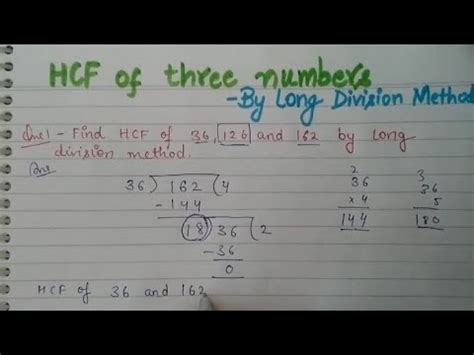 HCF of three numbers
-By Long Division Method
Que1 - Find HCF of 36, 126 and 162 by long
division method.
Ans
36 ) 162 ( 4
- 144
18 ) 36 ( 2
- 36
0
2
36
x 4
144
3
36
5
180
HCF of 36 and 162